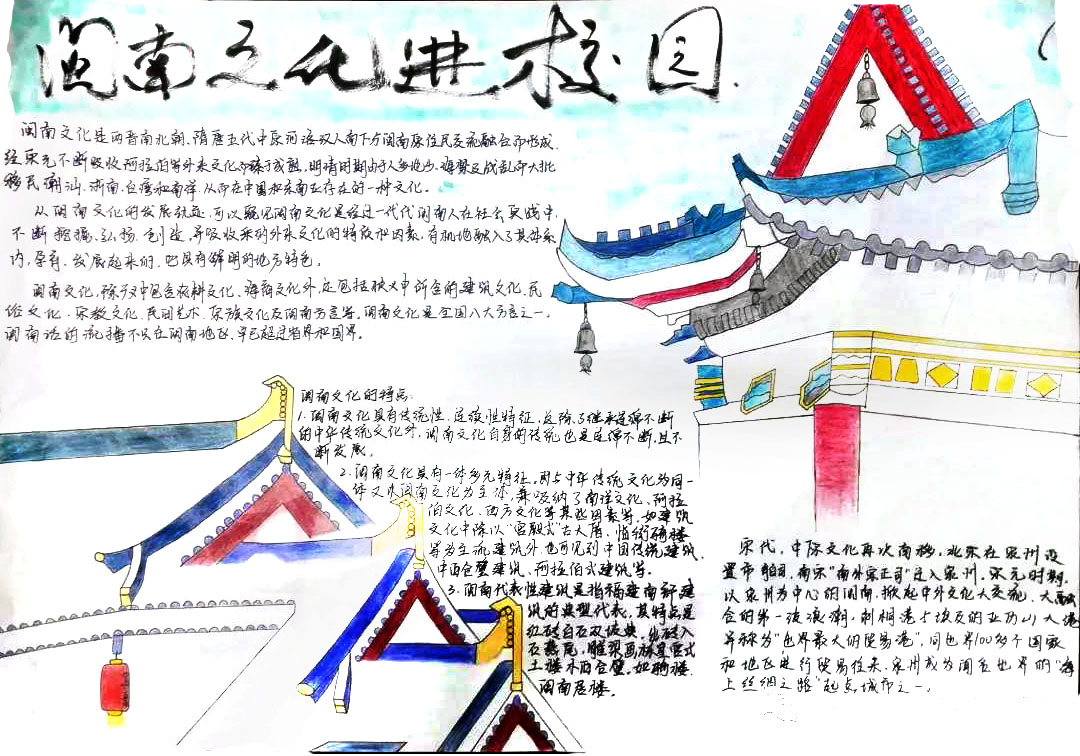 闽南文化进校园
闽南文化是两晋南北朝、隋唐五代中原河洛汉人南下与闽南原住民交流融合而形成,
经宋元不断吸收阿拉伯等外来文化而臻于成熟,明清时期由于人多地少、海禁及战乱而大批
移民潮汕、浙南、台湾和南洋,从而在中国和东南亚存在的一种文化。
从闽南文化的发展轨迹,可以窥见闽南文化是经过一代代闽南人在社会实践中,
不断 弘扬、创造,并吸收采纳外来文化的特质和因素,有机地融入了其体系
内,孕育、发展起来的,它具有鲜明的地方特色。
闽南文化,除了中包含农耕文化、海商文化外,还包括 中所含的建筑文化、民
俗文化、宗教文化、民间艺术、宗族文化及闽南方言等。闽南文化是全国八大方言之一。
闽南话的流播不只在闽南地区,早已超过省界和国界。
闽南文化的特点:
1.闽南文化具有传统性、延续性特征,这除了继承连绵不断
的中华传统文化外,闽南文化自身的传统也是连绵不断,且不
断发展。
2.闽南文化具有一体多元特征。因与中华传统文化为同一
体又以闽南文化为主体,兼吸纳了南洋文化、阿拉
伯文化、西方文化等某些因素等,如建筑
文化中除以“宫殿式”古大厝、 骑楼
等为主流建筑外,也可见到中国传统建筑、
中西合璧建筑、阿拉伯式建筑等。
3.闽南代表性建筑是指福建南部建
筑的典型代表,其特点是
红砖白石双坡曲,出砖入
石燕尾 ,雕梁画栋皇宫式
土楼木西合璧。如骑楼、
闽南厝楼。
宋代,中原文化再次南移,北宋在泉州设
置市舶司,南宋“南外宗正司”迁入泉州。宋元时期,
以泉州为中心的闽南,掀起中外文化大交流、大融
合的第一波浪潮,刺桐港与埃及的亚历山大港
并称为“世界最大的贸易港”,同世界100多个国家
和地区进行贸易往来,泉州成为闻名世界的“海
上丝绸之路”起点城市之一。